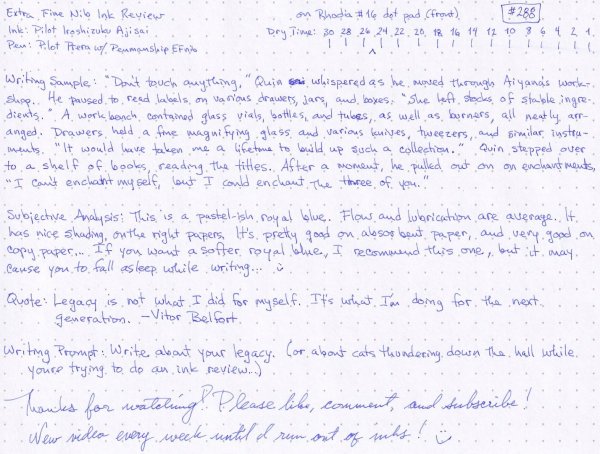 Extra Fine Nib Ink Review on Rhodia #16 dot pad (front) #288
Ink: Pilot Iroshizuku Ajisai Dry Time: 30 28 26 24 22 20 18 16 14 12 10 8 6 4 2 1
Pen: Pilot Ptera w/ Penmanship EF nib
Writing Sample: "Don't touch anything," Quin whispered as he moved through Aiyana's work-
shop. He paused to read labels on various drawers, jars, and boxes. "She left stocks of stable ingre-
dients." A workbench contained glass vials, bottles, and tubes, as well as burners, all neatly arr-
anged. Drawers held a fine magnifying glass and various knives, tweezers, and similar instru-
ments. "It would have taken me a lifetime to build up such a collection." Quin stepped over
to a shelf of books, reading the titles. After a moment, he pulled out on on enchantments,
"I can't enchant myself, but I could enchant the three of you."
Subjective Analysis: This is a pastel-ish royal blue. Flow and lubrication are average. It
has nice shading on the right papers. It's pretty good on absorbent paper, and very good on
copy paper... If you want a softer royal blue, I recommend this one, but it may
cause you to fall asleep while writing...
Quote: Legacy is not what I did for myself. It's what I'm doing for the next
generation. -Vitor Belfort
Writing Prompt: Write about your legacy. (or about cats thundering down the hall while
you're trying to do an ink review..)
Thanks for watching! Please like, comment, and subscribe!
New video every week until I run out of inks!